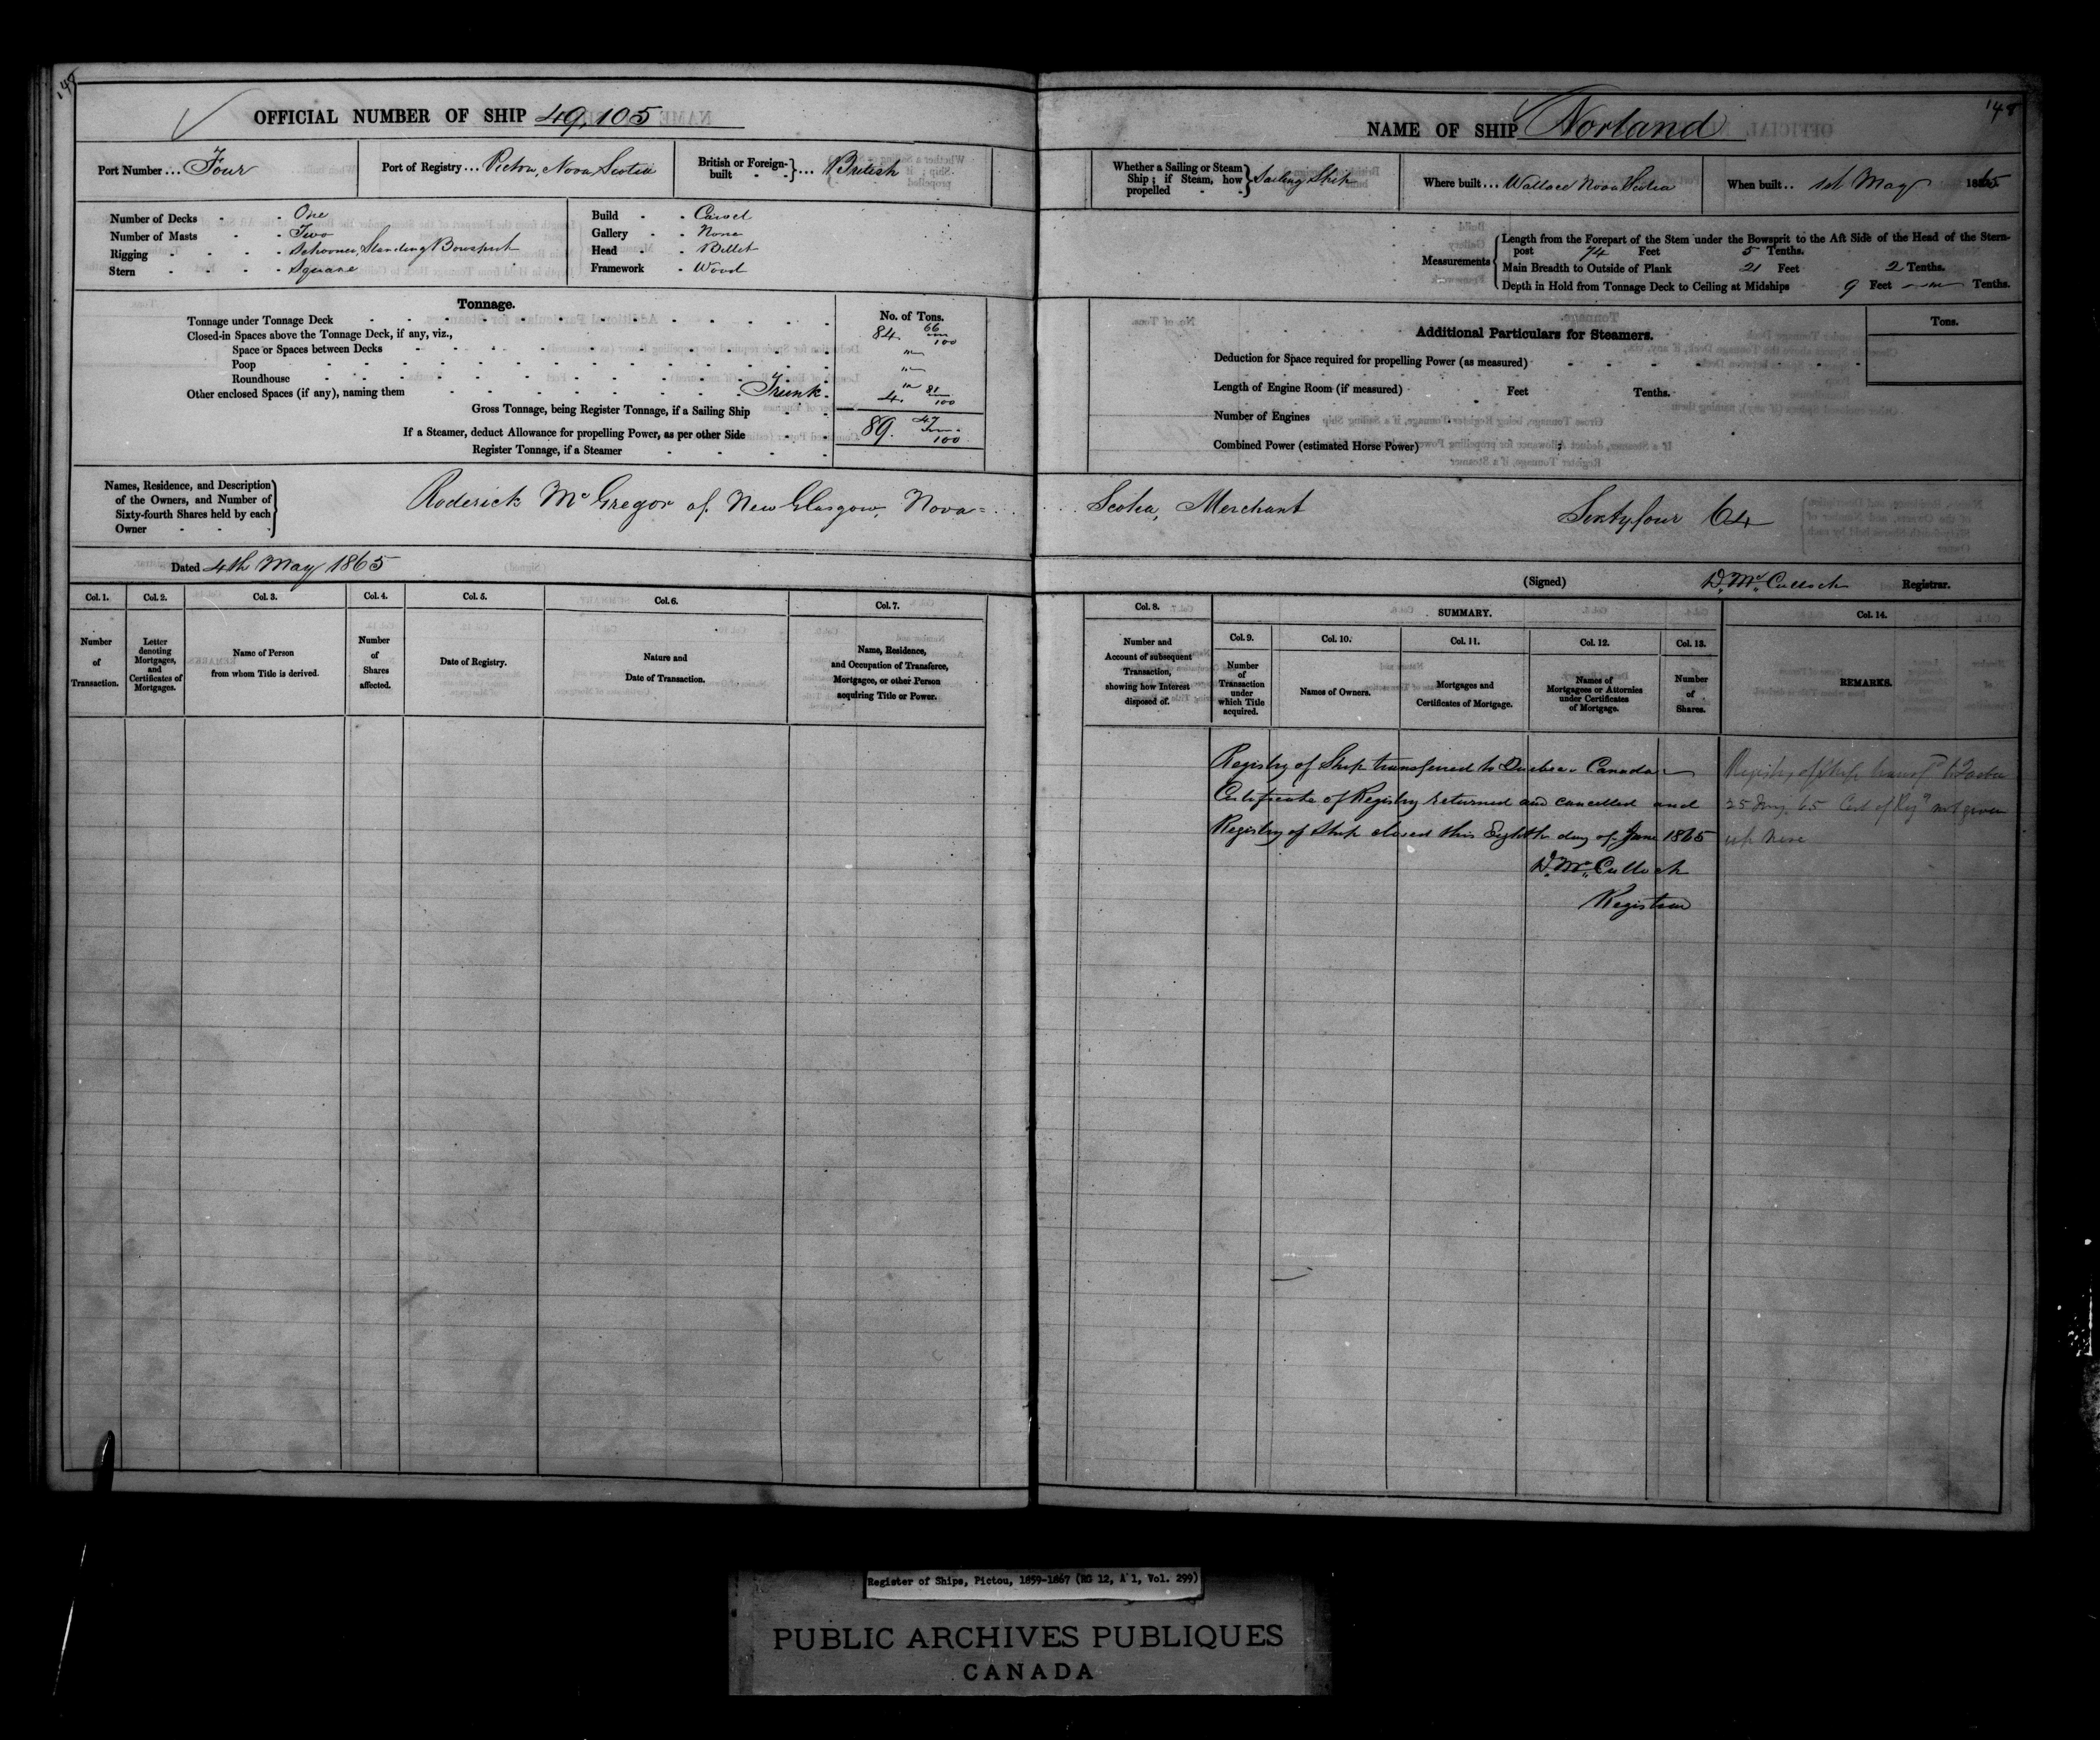 148
OFFICIAL NUMBER OF SHIP 49,105
Port Number ... Four
Port of Registry ... Pictou, Nova Scotia
British or Foreign-built ... British
Number of Decks - One
Number of Masts - Two
Rigging - Schooner, Standing Bowsprit
Stern - Square
Build - Carvel
Gallery - None
Head - Billet
Framework - Wood
Tonnage.
No. of Tons.
Tonnage under Tonnage Deck 84. 66/100
Closed-in Spaces above the Tonnage Deck, if any, viz.,
Space or Spaces between Decks "
Poop "
Roundhouse "
Other enclosed Spaces (if any), naming them Trunk. 4. 81/100
Gross Tonnage, being Register Tonnage, if a Sailing Ship 89. 47/100
If a Steamer, deduct Allowance for propelling Power, as per other Side
Register Tonnage, if a Steamer
Names, Residence, and Description
of the Owners, and Number of
Sixty-fourth Shares held by each
Owner
Roderick McGregor of New Glasgow, Nova=
Dated 4th May 1865
Col. 1. Col. 2. Col. 3. Col. 4. Col. 5. Col. 6. Col. 7.
Number of Transaction.
Letter denoting Mortgages, and Certificates of Mortgages.
Name of Person from whom Title is derived.
Number of Shares affected.
Date of Registry.
Nature and Date of Transaction.
Name, Residence, and Occupation of Transferee, Mortgagee, or other Person acquiring Title or Power.
148
NAME OF SHIP Norland
Whether a Sailing or Steam Ship; if Steam, how propelled Sailing Ship
Where built ... Wallace Nova Scotia
When built .. 1st May 1865
Measurements
Length from the Forepart of the Stem under the Bowsprit to the Aft Side of the Head of the Stern-
post 74 Feet 5 Tenths.
Main Breadth to Outside of Plank 21 Feet 2 Tenths.
Depth in Hold from Tonnage Deck to Ceiling at Midships 9 Feet — " — Tenths.
Additional Particulars for Steamers.
Tons.
Deduction for Space required for propelling Power (as measured)
Length of Engine Room (if measured) Feet Tenths.
Number of Engines
Combined Power (estimated Horse Power)
Scotia, Merchant Sixtyfour 64
(Signed) D. McCulloch Registrar.
Col. 8. SUMMARY. Col. 14.
Col. 9. Col. 10. Col. 11. Col. 12. Col. 13.
Number and Account of subsequent Transaction, showing how Interest disposed of.
Number of Transaction under which Title acquired.
Names of Owners.
Mortgages and Certificates of Mortgage.
Names of Mortgagees or Attornies under Certificates of Mortgage.
Number of Shares.
REMARKS.
Registry of Ship transferred to Quebec Canada
Certificate of Registry returned and cancelled and
Registry of Ship closed this Eighth day of June 1865
D. McCulloch
Registrar
Registry of Ship transfd to Quebec
25 65 Cert of Regy not given
up here
Register of Ships, Pictou, 1859-1867 (RG 12, A 1, Vol. 299)
PUBLIC ARCHIVES PUBLIQUES
CANADA